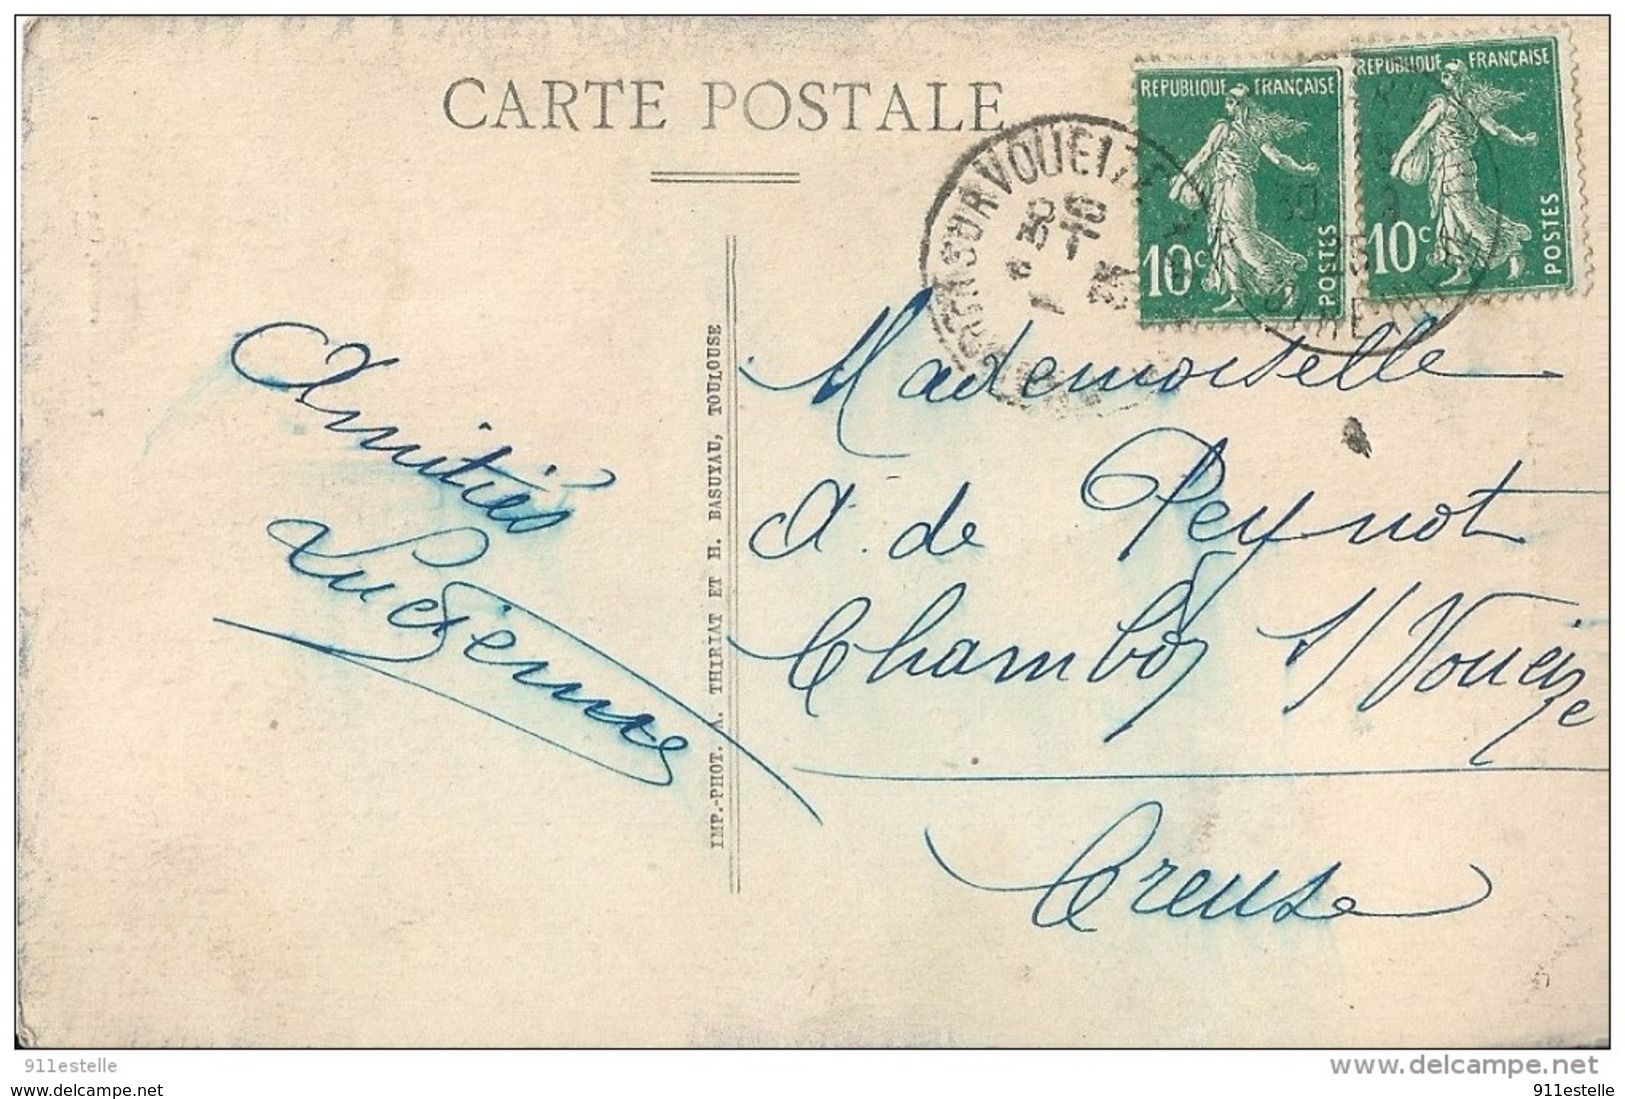 CARTE POSTALE
REPUBLIQUE FRANÇAISE
10c
POSTES
REPUBLIQUE FRANÇAISE
10c
POSTES
SUR VOUEIZE
30 -10
Amitiés
Lucienne
IMP.-PHOT. A. THIRIAT ET H. BASUYAU, TOULOUSE
Mademoiselle
A. de Peynot
Chambon s/Voueize
Creuse
911estelle
www.delcampe.net
911estelle
www.delcampe.net
911estelle